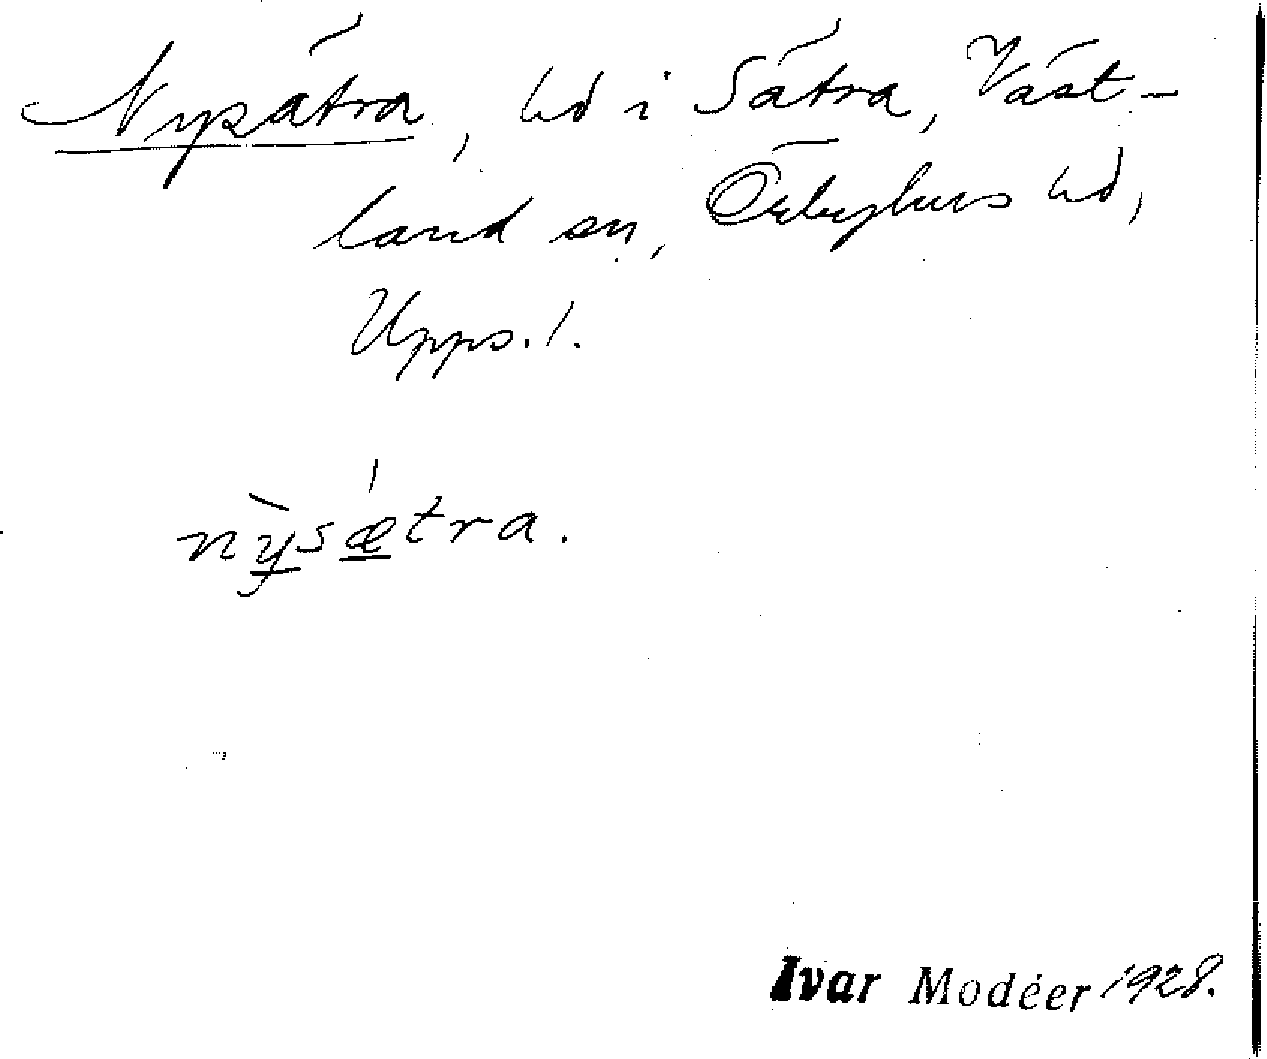 Nysätra, hd i Sätra, Väst-
land sn, Örbyhus hd,
Upps. l.
nỳsǽtra.
Ivar Modéer 1928.